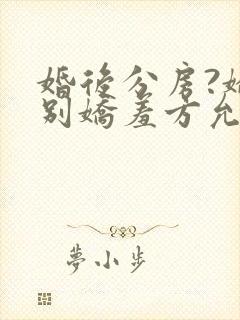 婚後分房?
別嬌羞方允
夢小步